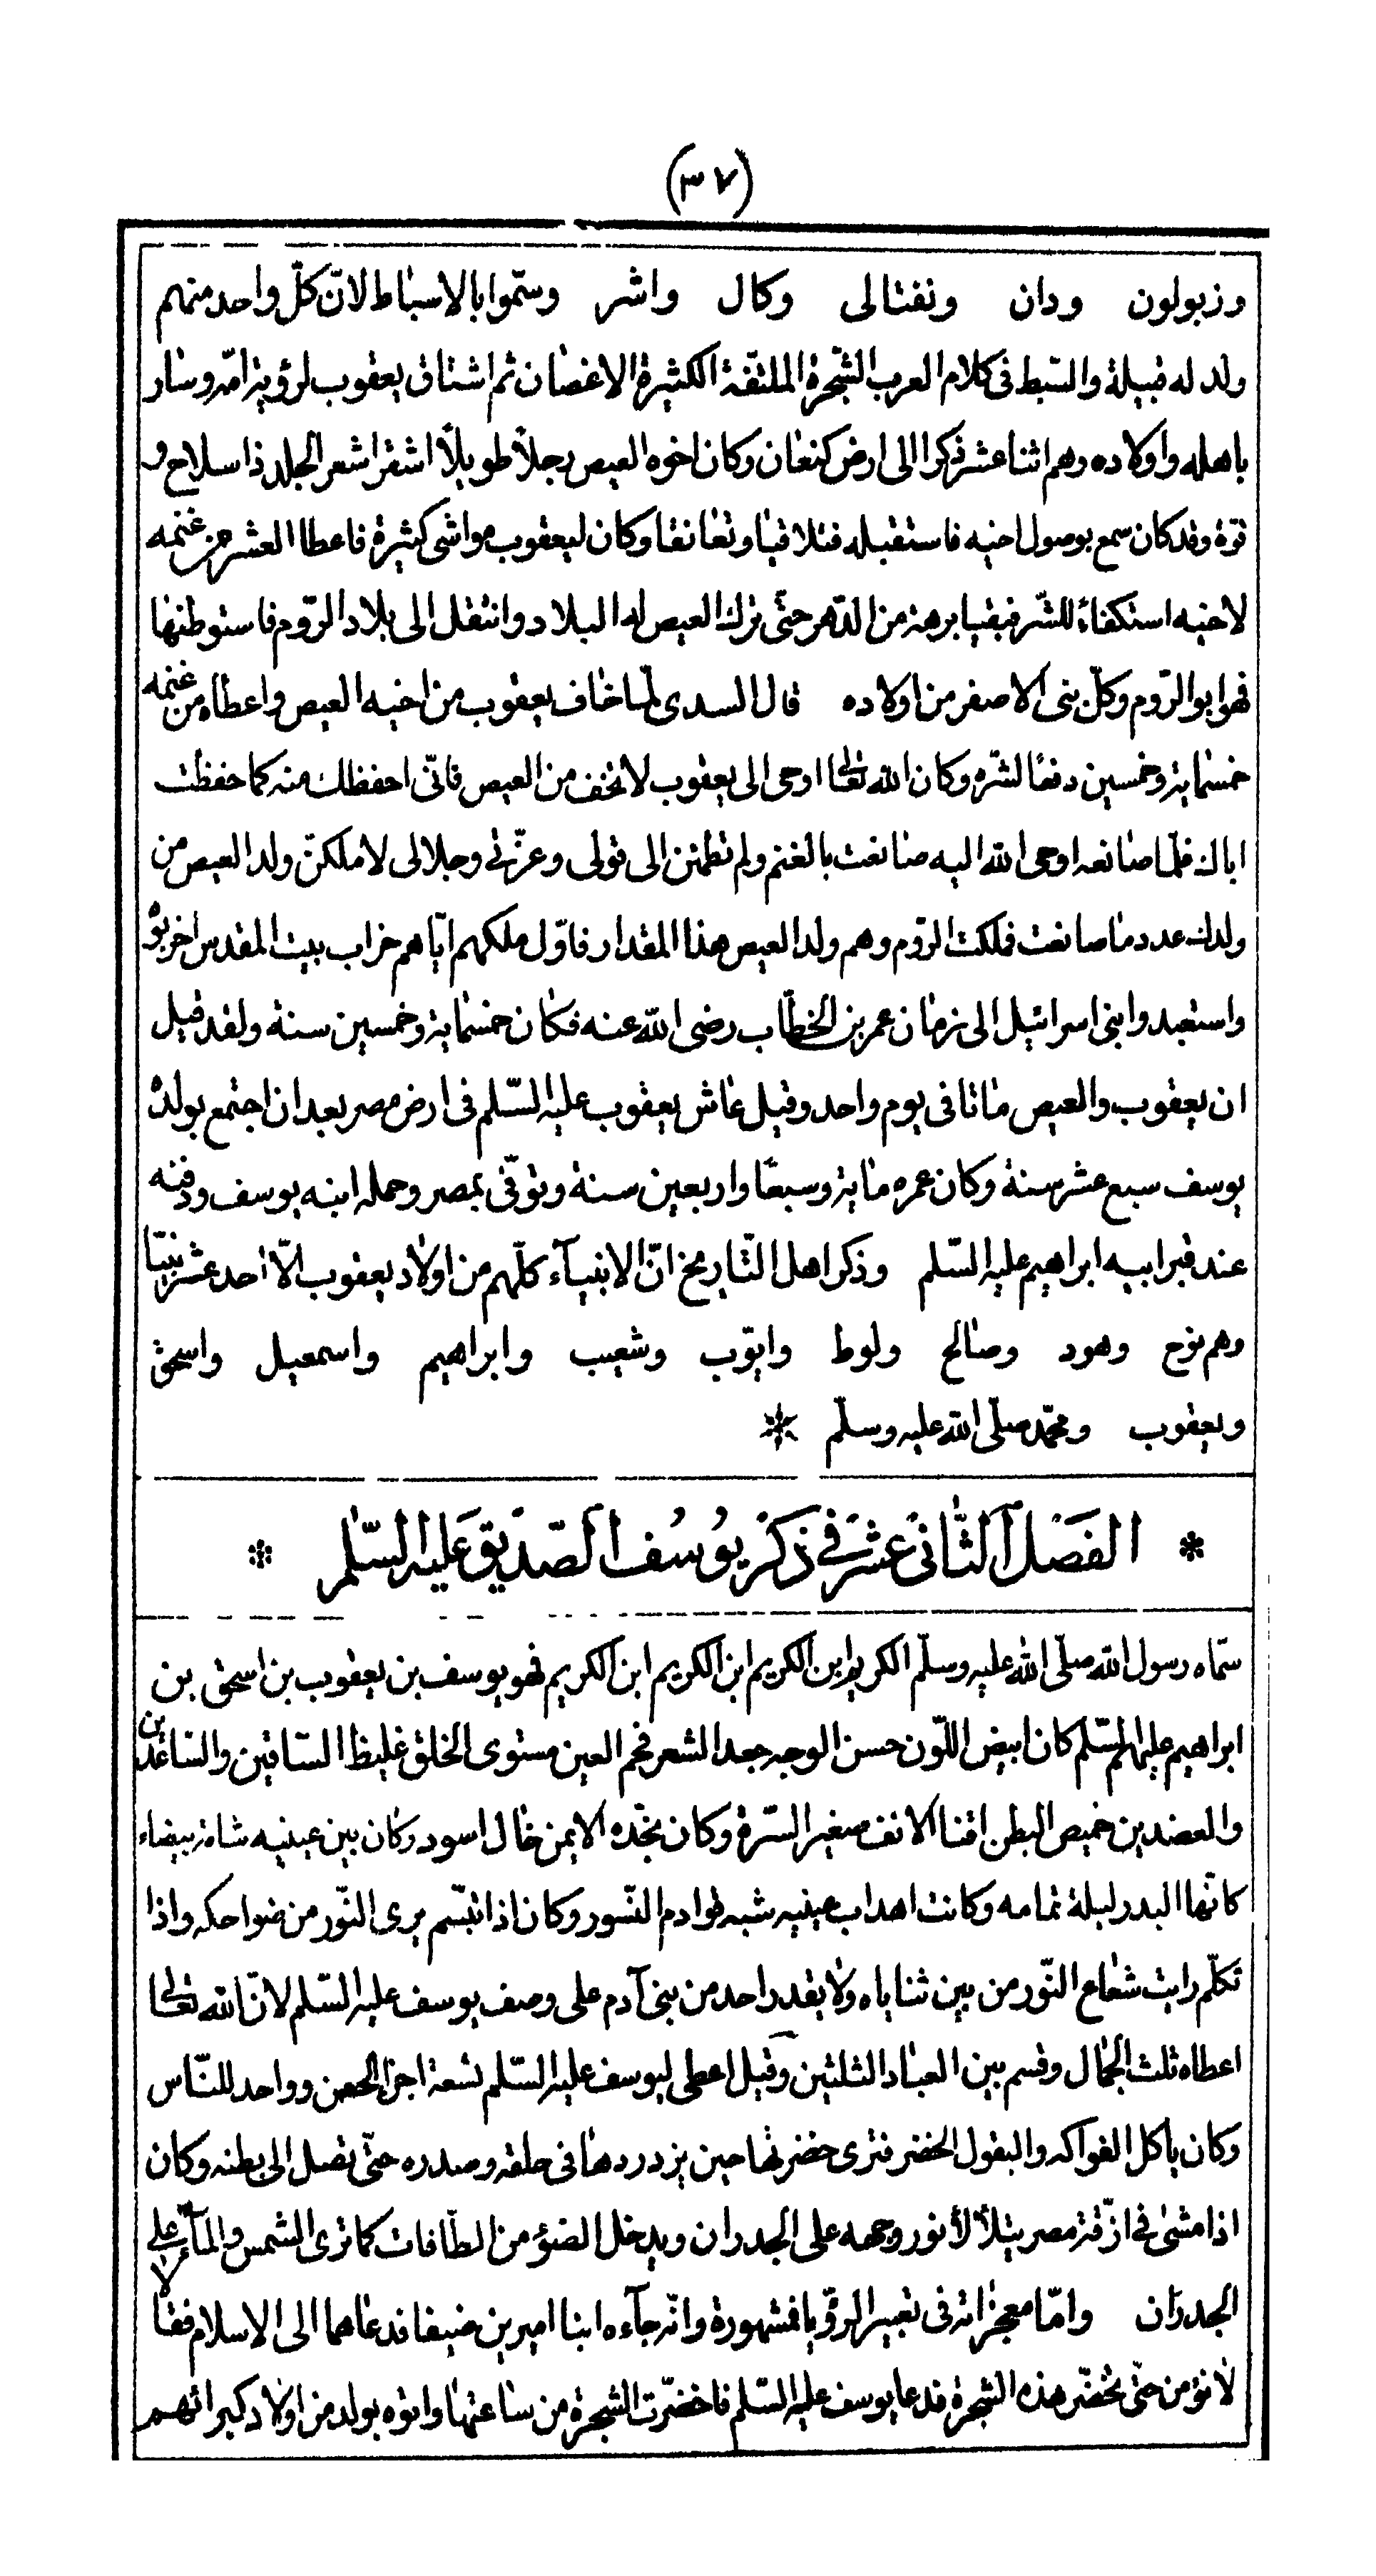 (٣٧)
وزبولون ودان ونفتالى وكال واشر وسمّوا بالاسباط لانّ كلّ واحد منهم
ولد له قبيلة والسّبط فى كلام العرب الشّجرة الملتفّة الكثيرة الاغصان ثم اشتاق يعقوب لرؤية امّه وسار
باهله واولاده وهم اثنا عشر ذكرا الى ارض كنعان وكان اخوه العيص رجلاً طويلاً اشقر اشعر الجلد ذا سلاح و
قوّة وقد كان سمع بوصول اخيه فاستقبله فتلاقيا وتعانقا وكان ليعقوب مواشى كثيرة فاعطا العشر من غنمه
لاخيه استكفاء للشّر فبقيا برهة من الدّهر حتّى ترك العيص له البلاد وانتقل الى بلاد الرّوم فاستوطنها
فهو ابو الرّوم وكلّ بنى الاصفر من اولاده قال السدى لمّا خاف يعقوب من اخيه العيص واعطاه من غنمه
خمسماية وخمسين دفعًا لشرّه وكان الله تعالى اوحى الى يعقوب لا تخف من العيص فانّى احفظك منه كما حفظت
اباك فلمّا صانعه اوحى الله اليه صانعت بالغنم ولم تطمئن الى قولى وعزّتى وجلالى لاملكنّ ولد العيص من
ولدك عدد ما صانعت فملكت الرّوم وهم ولد العيص هذا المقدار فاوّل ملكهم ايّاهم خراب بيت المقدس اخربوه
واستعبدوا بنى اسرائيل الى زمان عمر بن الخطّاب رضى الله عنه فكان خمسماية وخمسين سنة ولقد قيل
ان يعقوب والعيص ماتا فى يوم واحد وقيل عاش يعقوب عليه السّلم فى ارض مصر بعد ان اجتمع بولده
يوسف سبع عشر سنة وكان عمره ماية وسبعًا واربعين سنة وتوفّى بمصر وحمله ابنه يوسف ودفنه
عند قبر ابيه ابراهيم عليه السّلم وذكر اهل التّاريخ انّ الانبيآء كلّهم من اولاد يعقوب الّا احد عشر نبيّا
وهم نوح وهود وصالح ولوط وايّوب وشعيب وابراهيم واسمعيل واسحق
ويعقوب ومحمّد صلّى الله عليه وسلّم *
* الفصل الثّانى عشر فى ذكر يوسف الصّديق عليه السّلم *
سمّاه رسول الله صلّى الله عليه وسلّم الكريم ابن الكريم ابن الكريم ابن الكريم فهو يوسف بن يعقوب بن اسحق بن
ابراهيم عليهم السّلم كان ابيض اللّون حسن الوجه جعد الشعر فخم العين مستوى الخلق غليظ السّاقين والسّاعدين
والعضدين خميص البطن اقنا الانف صغير السّرة وكان بخدّه الايمن خال اسود وكان بين عينيه شامة بيضاء
كانّها البدر ليلة تمامه وكانت اهداب عينيه شبه قوادم النّسور وكان اذا تبسّم يرى النّور من ضواحكه واذا
تكلّم رايت شعاع النّور من بين ثناياه ولا يقدر احد من بنى آدم على وصف يوسف عليه السّلم لانّ الله تعالى
اعطاه ثلث الجمال وقسم بين العباد الثلثين وقيل اعطى ليوسف عليه السّلم تسعة اجزا الحسن وواحد للنّاس
وكان ياكل الفواكه والبقول الخضر فترى خضرتها حين يزدردها فى حلقه وصدره حتّى تصل الى بطنه وكان
اذا مشى فى ازقّة مصر يتلألأ نور وجهه على الجدران ويدخل الضوء من الطّاقات كما ترى الشمس والمآء على
الجدران وامّا معجزاته فى تعبير الرؤيا فمشهورة وانّه جآءه ابنا اميرين ضيفا فدعاهما الى الاسلام فقالا
لا نؤمن حتّى تخضّر هذه الشجرة فدعا يوسف عليه السّلم فاخضرّت الشجرة من ساعتها واتوه بولد من اولاد كبرائهم